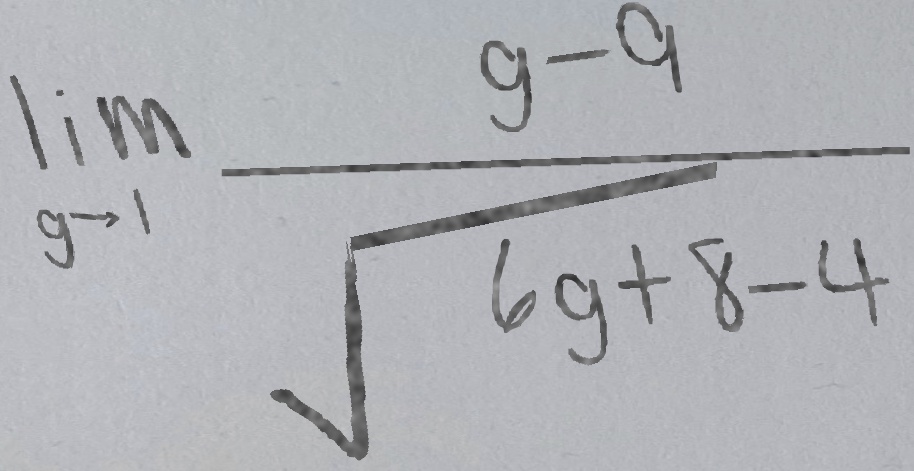 lim g-9
g→1
√6g+8-4